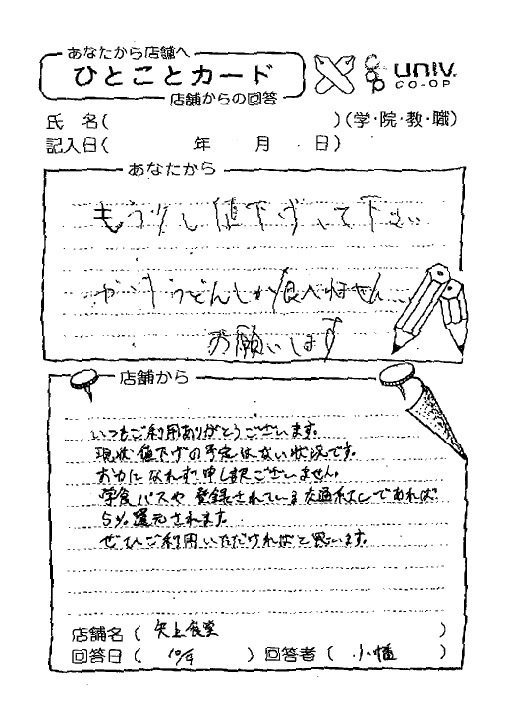 あなたから店舗へ
ひとことカード
店舗からの回答
univ.
CO-OP
氏 名( )(学・院・教・職)
記入日( 年 月 日)
あなたから
もう少し値下げして下さい
かけうどんしか食べれません…
お願いします
店舗から
いつもご利用ありがとうございます。
現状値下げの予定はない状況です。
お力になれず、申し訳ございません。
学食パスや登録されている交通系ICであれば
5%還元されます。
ぜひご利用いただければと思います。
店舗名( 矢上食堂 )
回答日( 10/4 ) 回答者( 小幡 )